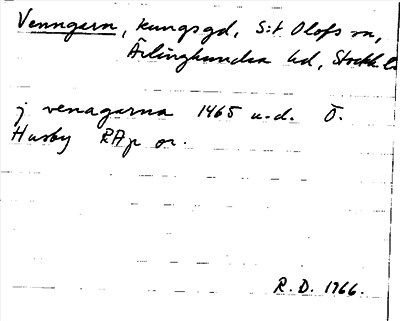 Venngarn, kungsgd, S:t Olofs sn,
Ärlinghundra hd, Stockh. l.
j venagarna 1465 u.d. Ö.
Husby RAp or.
R.D. 1966.